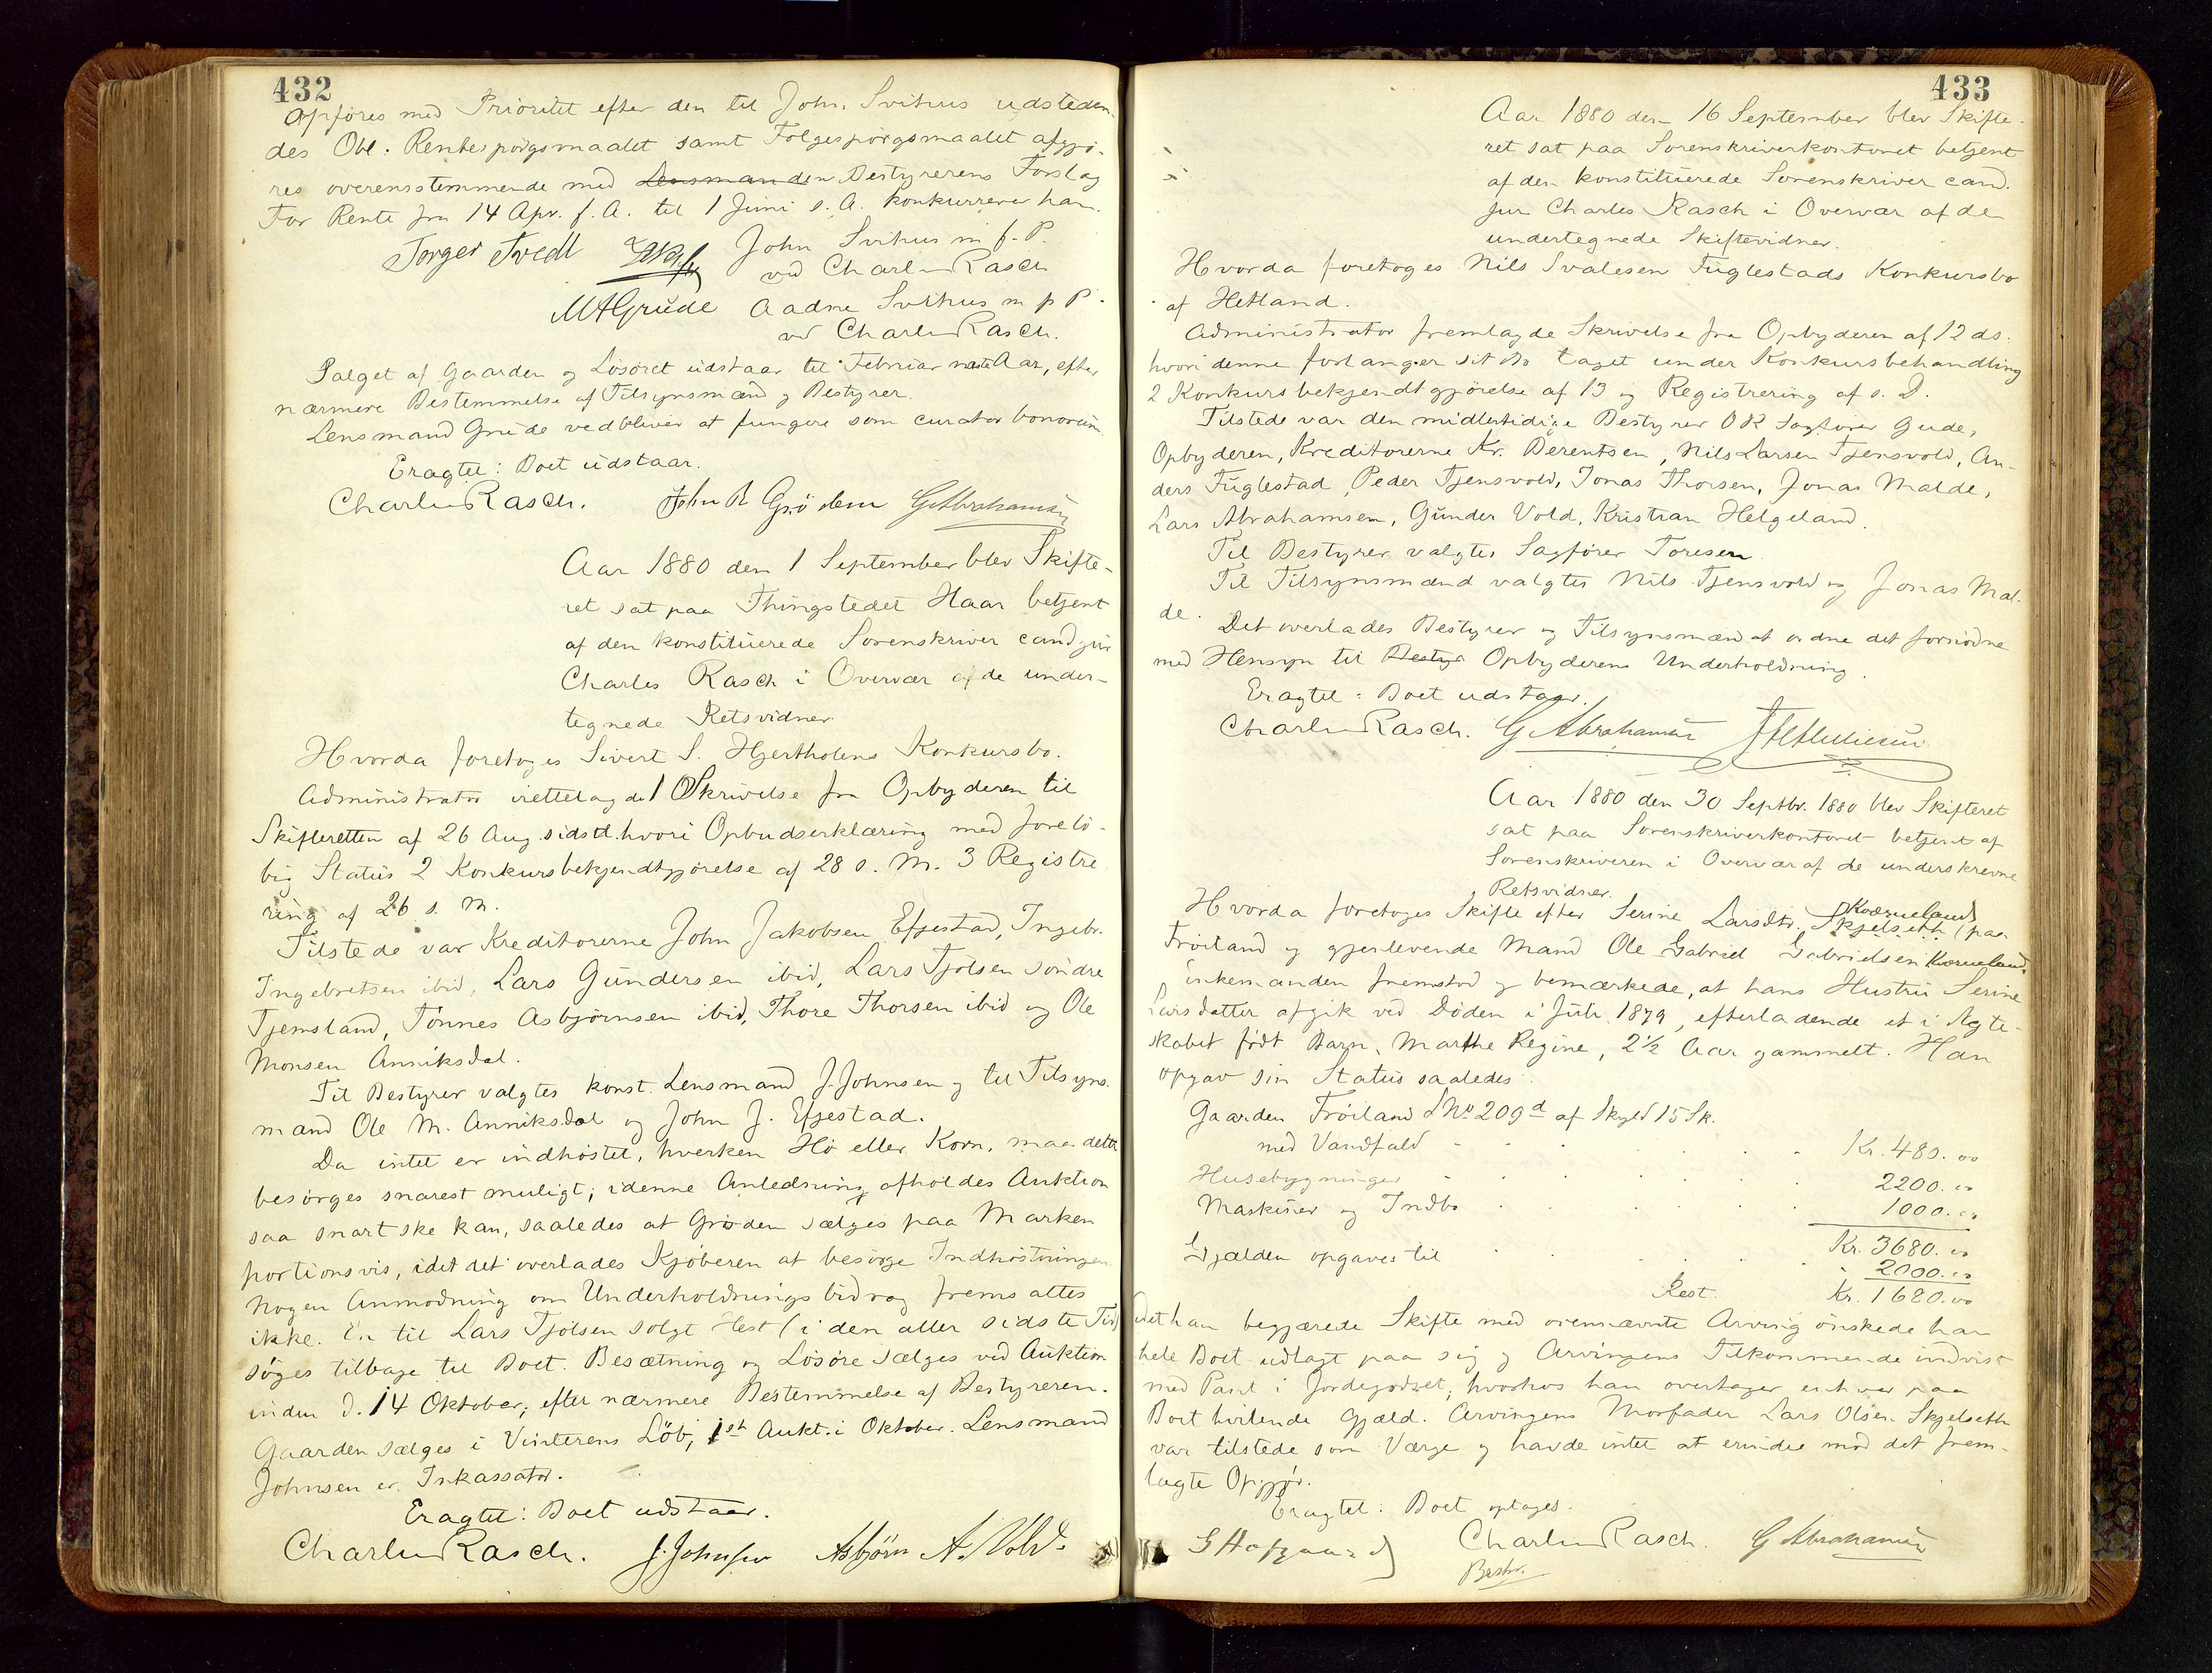 432
Opføres med Prioritet efter den til John Svihus udsteden-
des Obl. Rentespørgsmaalet samt Følgespørgsmaalet afgjø-
res overensstemmende med Lensmanden Bestyrerens Forslag
For Rente fra 14 Apr. f. A. til 1 Juni s. A. konkurrerer han.
Torger Tvedt John Svihus m f. P.
ved Charles Rasch
MAGrude Aadne Svihus m p P.
ved Charles Rasch.
Salget af Gaarden og Løsøret udstaar til Februar næste Aar, efter
nærmere Bestemmelse af Tilsynsmænd og Bestyrer.
Lensmand Grude vedbliver at fungere som curator bonorum.
Eragtet: Boet udstaar.
Charles Rasch. John B Grødem G Abrahamsen
Aar 1880 den 1 September blev Skifte-
ret sat paa Thingstedet Haar betjent
af den konstituerede Sorenskriver cand jur
Charles Rasch i Overvær af de under-
tegnede Retsvidner.
Hvorda foretoges Sivert S. Hjertholens Konkursbo.
Administrator irettelagde 1 Skrivelse fra Opbyderen til
Skifteretten af 26 Aug sidstl. hvori Opbudserklæring med forelø-
big Status 2 Konkursbekjendtgjørelse af 28 s. M. 3 Registre
ring af 26 s. M.
Tilstede var Kreditorerne John Jakobsen Efjestad, Ingebr.
Ingebretsen ibid, Lars Gundersen ibid, Lars Tjølsen søndre
Tjemsland, Tønnes Asbjørnsen ibid, Thore Thorsen ibid og Ole
Monsen Anniksdal.
Til Bestyrer valgtes konst. Lensmand J. Johnsen og til Tilsyns-
mænd Ole M. Anniksdal og John J. Efjestad.
Da intet er indhøstet, hverken Hø eller Korn, maa dette
besørges snarest muligt; i denne Anledning afholdes Auktion
saa snart ske kan, saaledes at Grøden sælges paa Marken
portionsvis, idet det overlades Kjøberen at besørge Indhøstningen.
Nogen Anmodning om Underholdningsbidrag fremsattes
ikke. En til Lars Tjølsen solgt Hest (i den aller sidste Tid)
søges tilbage til Boet. Besætning og Løsøre sælges ved Auktion
inden d. 14 Oktober, efter nærmere Bestemmelse af Bestyreren.
Gaarden sælges i Vinterens Løb, 1ste Aukt. i Oktober. Lensmand
Johnsen er Inkassator.
Eragtet: Boet udstaar.
Charles Rasch. J. Johnsen Asbjørn A. Vold.
433
Aar 1880 den 16 September blev Skifte-
ret sat paa Sorenskriverkontoret betjent
af den konstituerede Sorenskriver cand.
jur Charles Rasch i Overvær af de
undertegnede Skiftevidner.
Hvorda foretoges Nils Svalesen Fuglestads Konkursbo
af Hetland.
Administrator fremlagde Skrivelse fra Opbyderen af 12 ds.
hvori denne forlanger sit Bo taget under Konkursbehandling
2 Konkursbekjendtgjørelse af 13 og Registrering af s. D.
Tilstede var den midlertidige Bestyrer OR Sagfører Gude,
Opbyderen, Kreditorerne Kr. Berentsen, Nils Larsen Tjensvold, An-
ders Fuglestad, Peder Tjensvold, Jonas Thorsen, Jonas Malde,
Lars Abrahamsen, Gunder Vold, Kristian Helgeland.
Til Bestyrer valgtes Sagfører Toresen
Til Tilsynsmænd valgtes Nils Tjensvold og Jonas Mal-
de.
Det overlades Bestyrer og Tilsynsmænd at ordne det fornødne
med Hensyn til Bestyr Opbyderens Underholdning.
Eragtet: Boet udstaar.
Charles Rasch. G Abrahamsen
Aar 1880 den 30 Septbr. 1880 blev Skifteret
sat paa Sorenskriverkontoret betjent af
Sorenskriveren i Overvær af de underskrevne
Retsvidner.
Hvorda foretoges Skifte efter Serine Larsdtr. Skjelseth (Kværneland) paa
Frøiland og gjenlevende Mand Ole Gabriel Gabrielsen Kværneland.
Enkemanden fremstod og bemærkede, at hans Hustru Serine
Larsdatter afgik ved Døden i Juli 1879, efterladende et i Ægte-
skabet født Barn, Marthe Regine, 2½ Aar gammelt. Han
opgav sin Status saaledes:
Gaarden Frøiland L No 209d af Skyld 15 Sk.
med Vandfald Kr. 480.00
Husebygninger 2200.00
Maskiner og Indbo 1000.00
Kr. 3680.00
Gjælden opgaves til 2000.00
Rest. Kr. 1680.00
Idet han begjærede Skifte med ovennævnte Arving ønskede han
hele Boet udlagt paa sig og Arvingens Tilkommende indvist
med Pant i Jordegodset, hvorhos han overtager enhver paa
Boet hvilende Gjæld. Arvingens Morfader Lars Olsen Skjelseth
var tilstede som Værge og havde intet at erindre mod det frem-
lagte Opgjør.
Eragtet: Boet optages.
Charles Rasch. G Abrahamsen
Bestr.